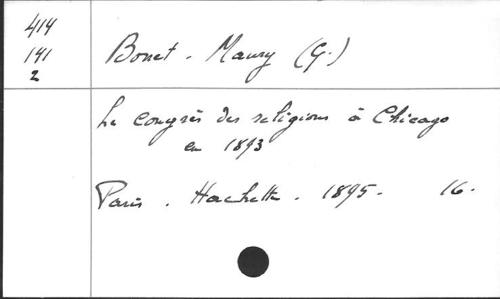 414
141
2
Bonet-Maury (G.)
Le congrès des religions à Chicago
en 1893
Paris. Hachette. 1895. 16.